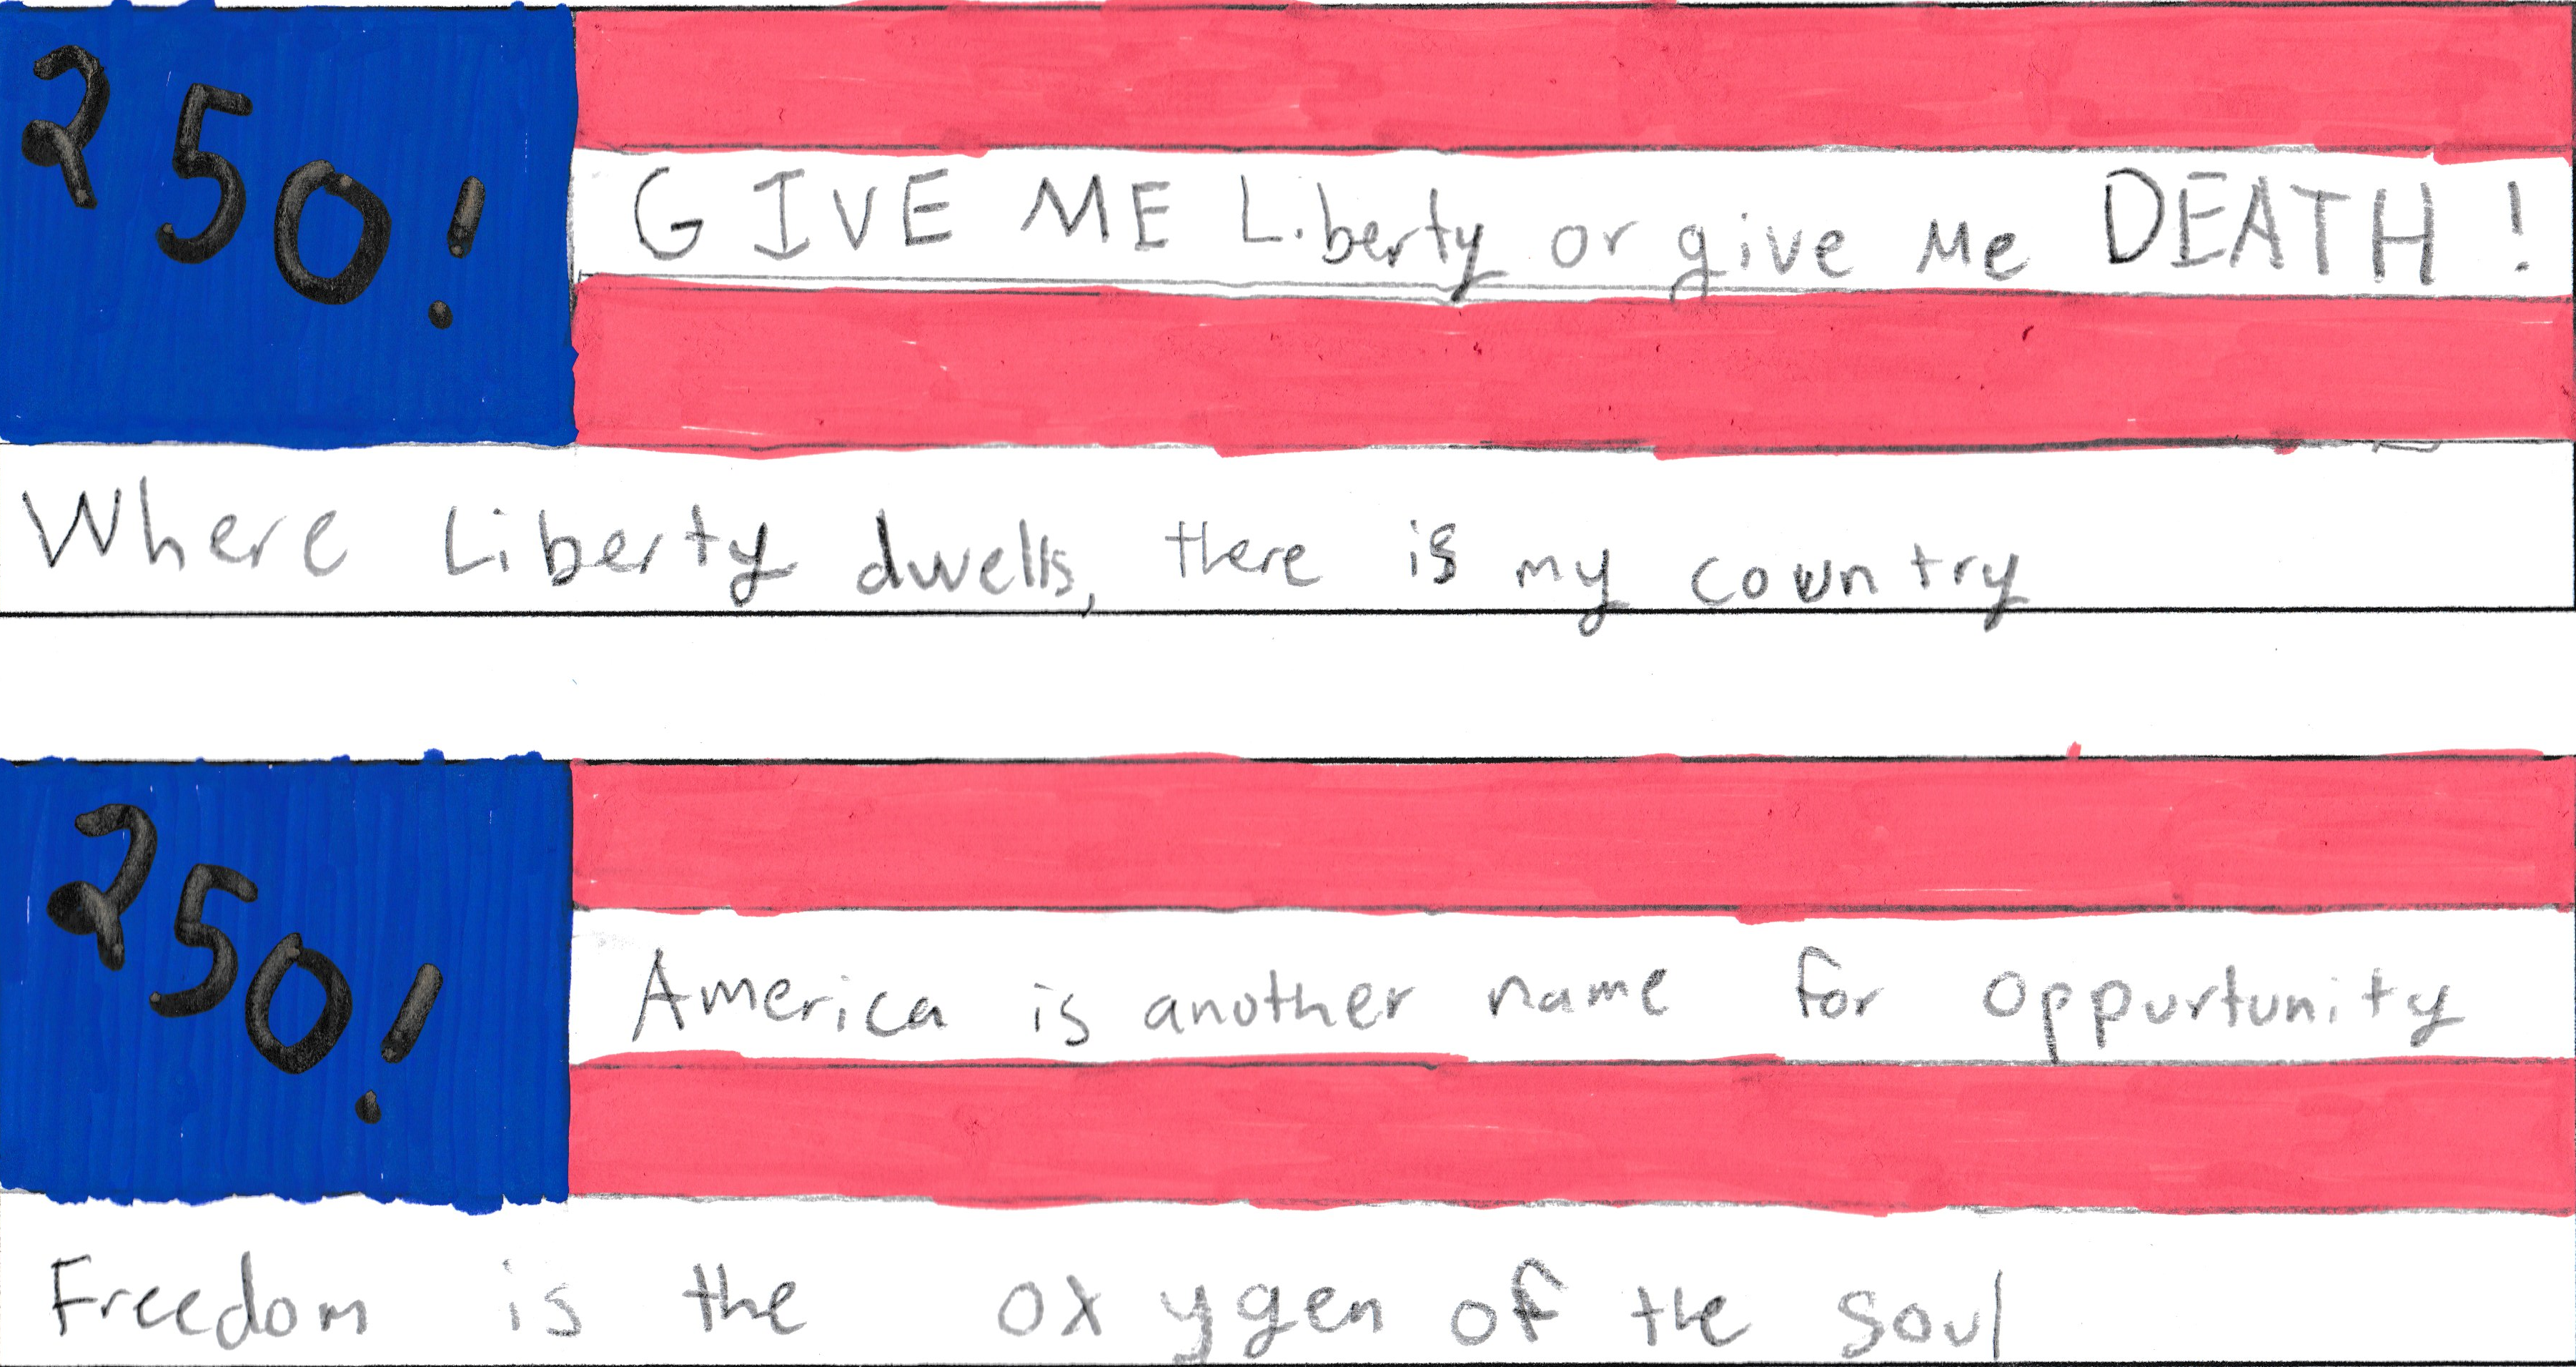 250!
GIVE ME Liberty or give Me DEATH!
Where Liberty dwells, there is my country
250!
America is another name for oppurtunity
Freedom is the oxygen of the soul